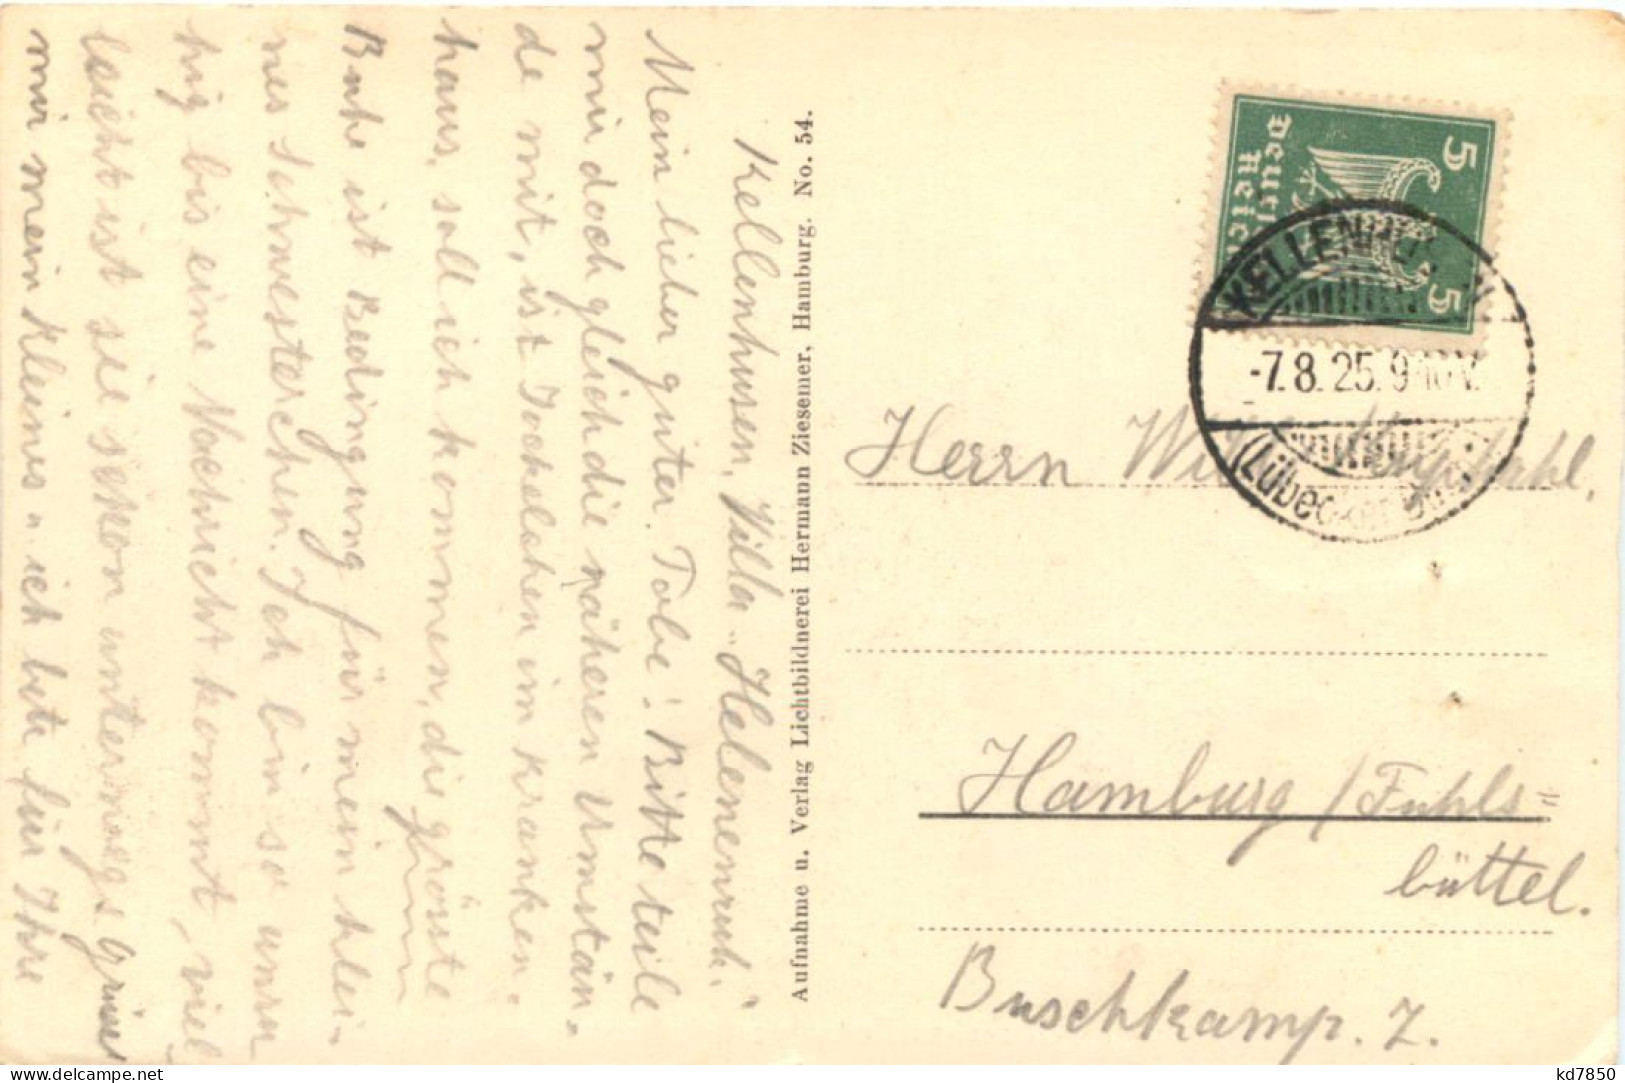 Kellenhusen, Villa „Helenenruh."
Mein lieber guter Tobe! Bitte teile
mir doch gleich die näheren Umstän-
de mit, ist Jochelchen im Kranken-
haus, soll ich kommen, die grösste
Ruhe ist Bedingung für mein klei-
nes Schwesterchen. Ich bin so unru
hig bis eine Nachricht kommt, viel
leicht ist sie schon unterwegs. Grüsst
mir mein Kleines u. ich bete für Ihre
Aufnahme u. Verlag Lichtbildnerei Hermann Ziesemer, Hamburg. No. 54.
Deutsches Reich
5
5
KELLENHUSEN
-7.8.25. 9-10V.
(Lübecker
Herrn
Hamburg/Fuhls-
büttel.
Buschkamp. 7.
kd7850